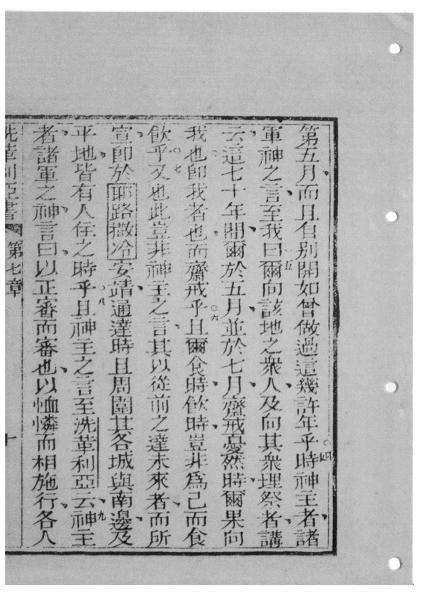 第五月而且自別開如曾做過這幾許年乎四時神主者諸
軍神之言至我曰五爾向該地之衆人及向其衆理祭者講
云這七十年間爾於五月並於七月齋戒憂然時爾果向
我也卽我者也而齋戒乎六且爾食時飲時豈非爲己而食
飲乎七又也此豈非神主之言其以從前之達未來者而所
宣卽於耶路撒冷安靖通達時且周圍其各城與南邊及
平地皆有人住之時乎八且神主之言至洗革利亞云九神主
者諸軍之神言曰以正審而審也以恤憐而相施行各人
洗革利亞書 第七章 十